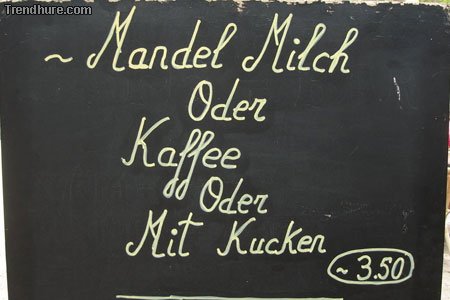 Trendhure.com
~ Mandel Milch
Oder
Kaffee
Oder
Mit Kucken
~ 3.50